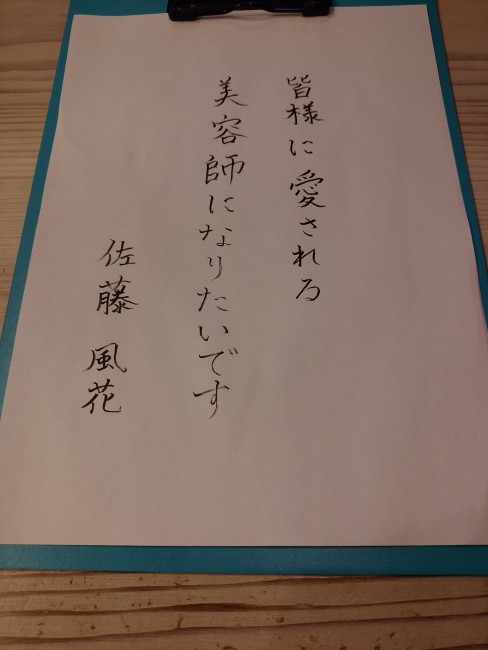 皆様に愛される
美容師になりたいです
佐藤 風花